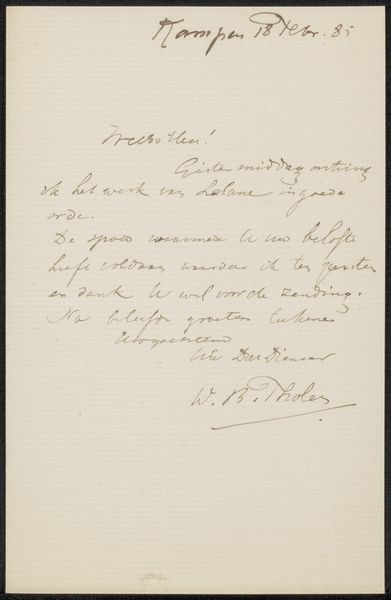 Kampen 18 Febr. 85
WelEd Heer!
Gister middag ontving
ik het werk van Lalane in goede
orde.
De spoed waarmede U uw belofte
heeft voldaan waardeer ik ten zeerste
en dank U wel voor de zending.
Na beleefde groeten teekene
Hoogachtend
Uw Dw Dienaar
W. B. Tholen